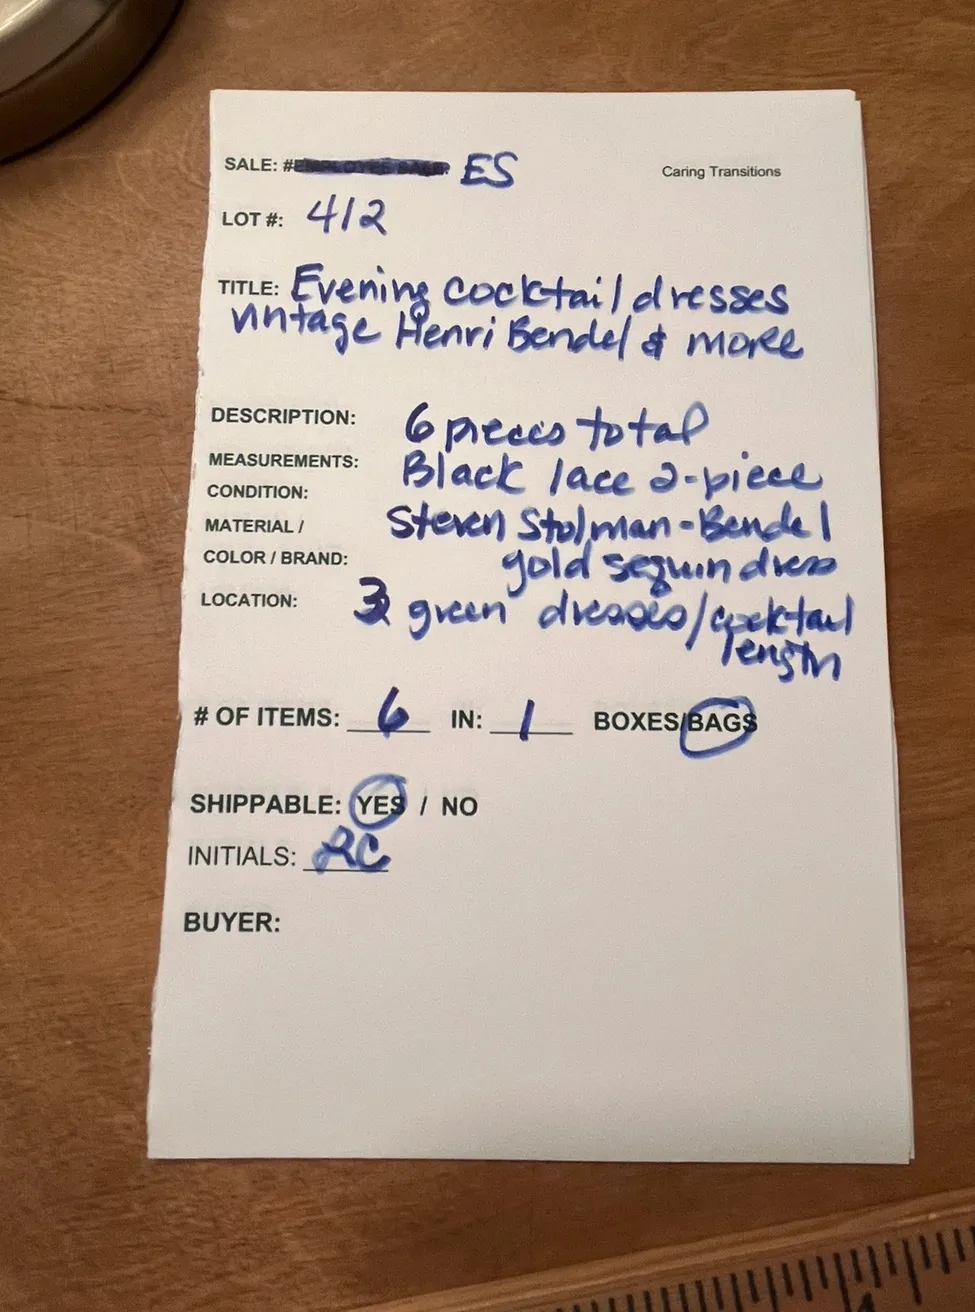 SALE: # ES
Caring Transitions
LOT #: 412
TITLE: Evening cocktail dresses
vintage Henri Bendel & more
DESCRIPTION: 6 pieces total
MEASUREMENTS: Black lace 2-piece
CONDITION:
MATERIAL / Steven Stolman-Bendel
COLOR / BRAND: gold sequin dress
LOCATION: 3 green dresses/cocktail
length
# OF ITEMS: 6 IN: 1 BOXES/BAGS
SHIPPABLE: YES / NO
INITIALS: RC
BUYER: